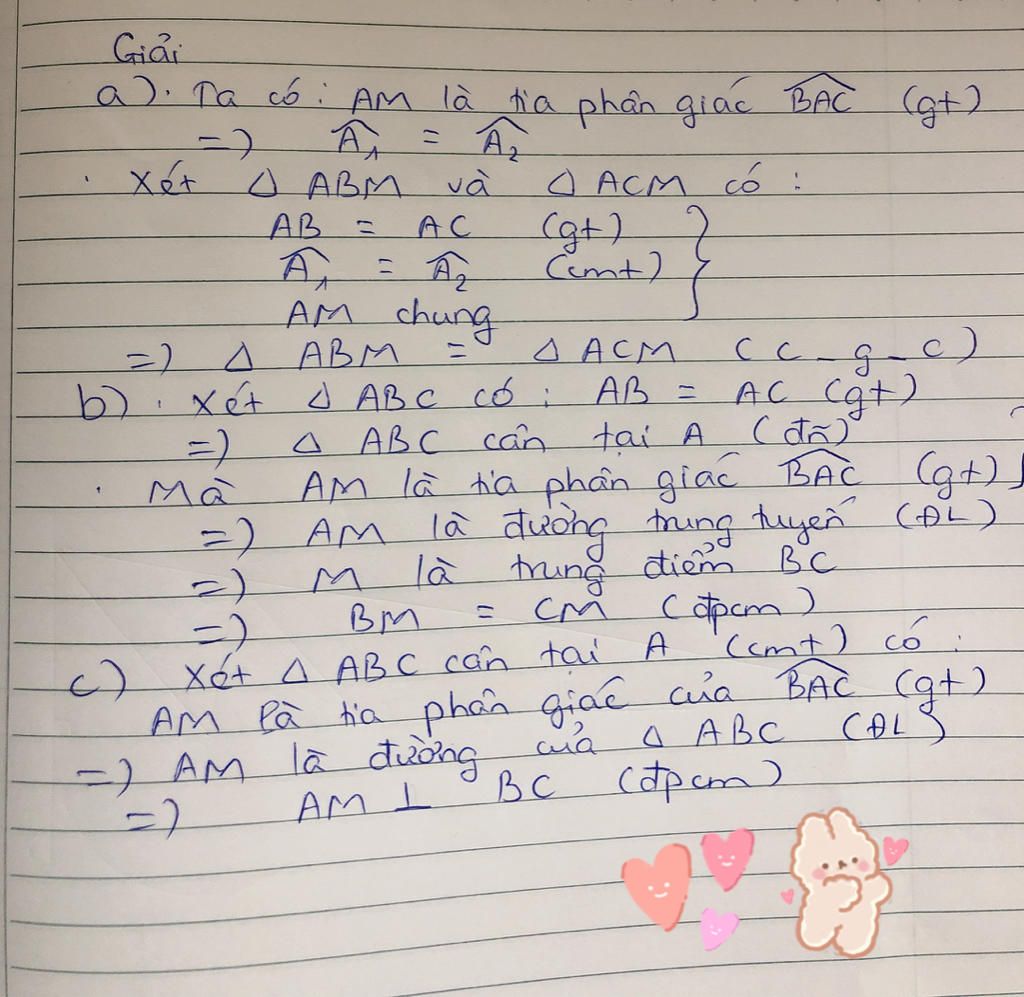 Giải
a). Ta có : AM là tia phân giác BAC (gt)
=) A1 = A2
. Xét Δ ABM và Δ ACM có :
AB = AC (gt)
A1 = A2 (cmt)
AM chung
=) Δ ABM = Δ ACM (c_g_c)
b) . Xét Δ ABC có : AB = AC (gt)
=) Δ ABC cân tại A (đn)
. Mà AM là tia phân giác BAC (gt)
=) AM là đường trung tuyến (ĐL)
=) M là trung điểm BC
=) BM = CM (đpcm)
c) Xét Δ ABC cân tại A (cmt) có :
AM là tia phân giác của BAC (gt)
=) AM là đường của Δ ABC (ĐL)
=) AM ⊥ BC (đpcm)